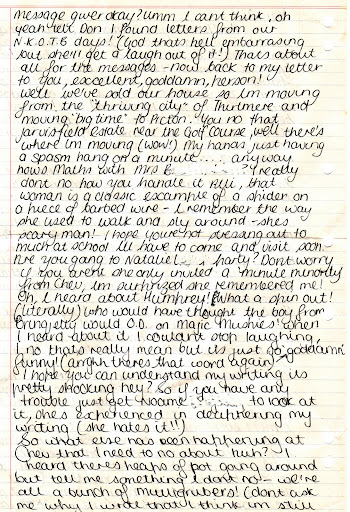 message quer okay? Umm I cant think, oh
yeah tell Don I found letters from our
N.K.O.T.B days! (God that's hell embarrasing
but she'll get a laugh out of it!) Thats about
all for the messages - now back to my letter
to you, excellent, goddamn, person!
Well we've sold our house so Im moving
from the "thriving city" of Thirlmere and
moving 'big time' to Picton. You no that
Jarvisfield estate near the Golf Course, well there's
where im moving (wow!) My hands just having
a spasm hang on a minute..... anyway
hows Maths with Mrs B ? I really
dont no how you handle it, that
woman is a classic example of a spider on
a piece of barbed wire - I remember the way
she used to walk and sly around - she's
scary man! I hope your not stressing out to
much at school Ill have to come and visit soon.
Are you gang to Natalie's party? Dont worry
if you arent she only invited a minute minority
from Chev, im surprized she remembered me!
Oh, I heard about Humphrey! What a spin out!
(literally) who would have thought the boy from
Bringelly would O.D. on Magic Mushies! When
I heard about it I couldnt stop laughing,
I no thats really mean but its just so goddamn
funny! (arrgh theres that word again)
I hope you can understand my writing its
pretty shocking hey? So if you have any
trouble just get Naome to look at
it, she's experienced in deciphering my
writing (she hates it!!)
So what else has been happening at
Chev that I need to no about huh? I
heard theres heaps of pot going around
but tell me something I dont no - we're
all a bunch of (dont ask
me why I wrote that I think im still